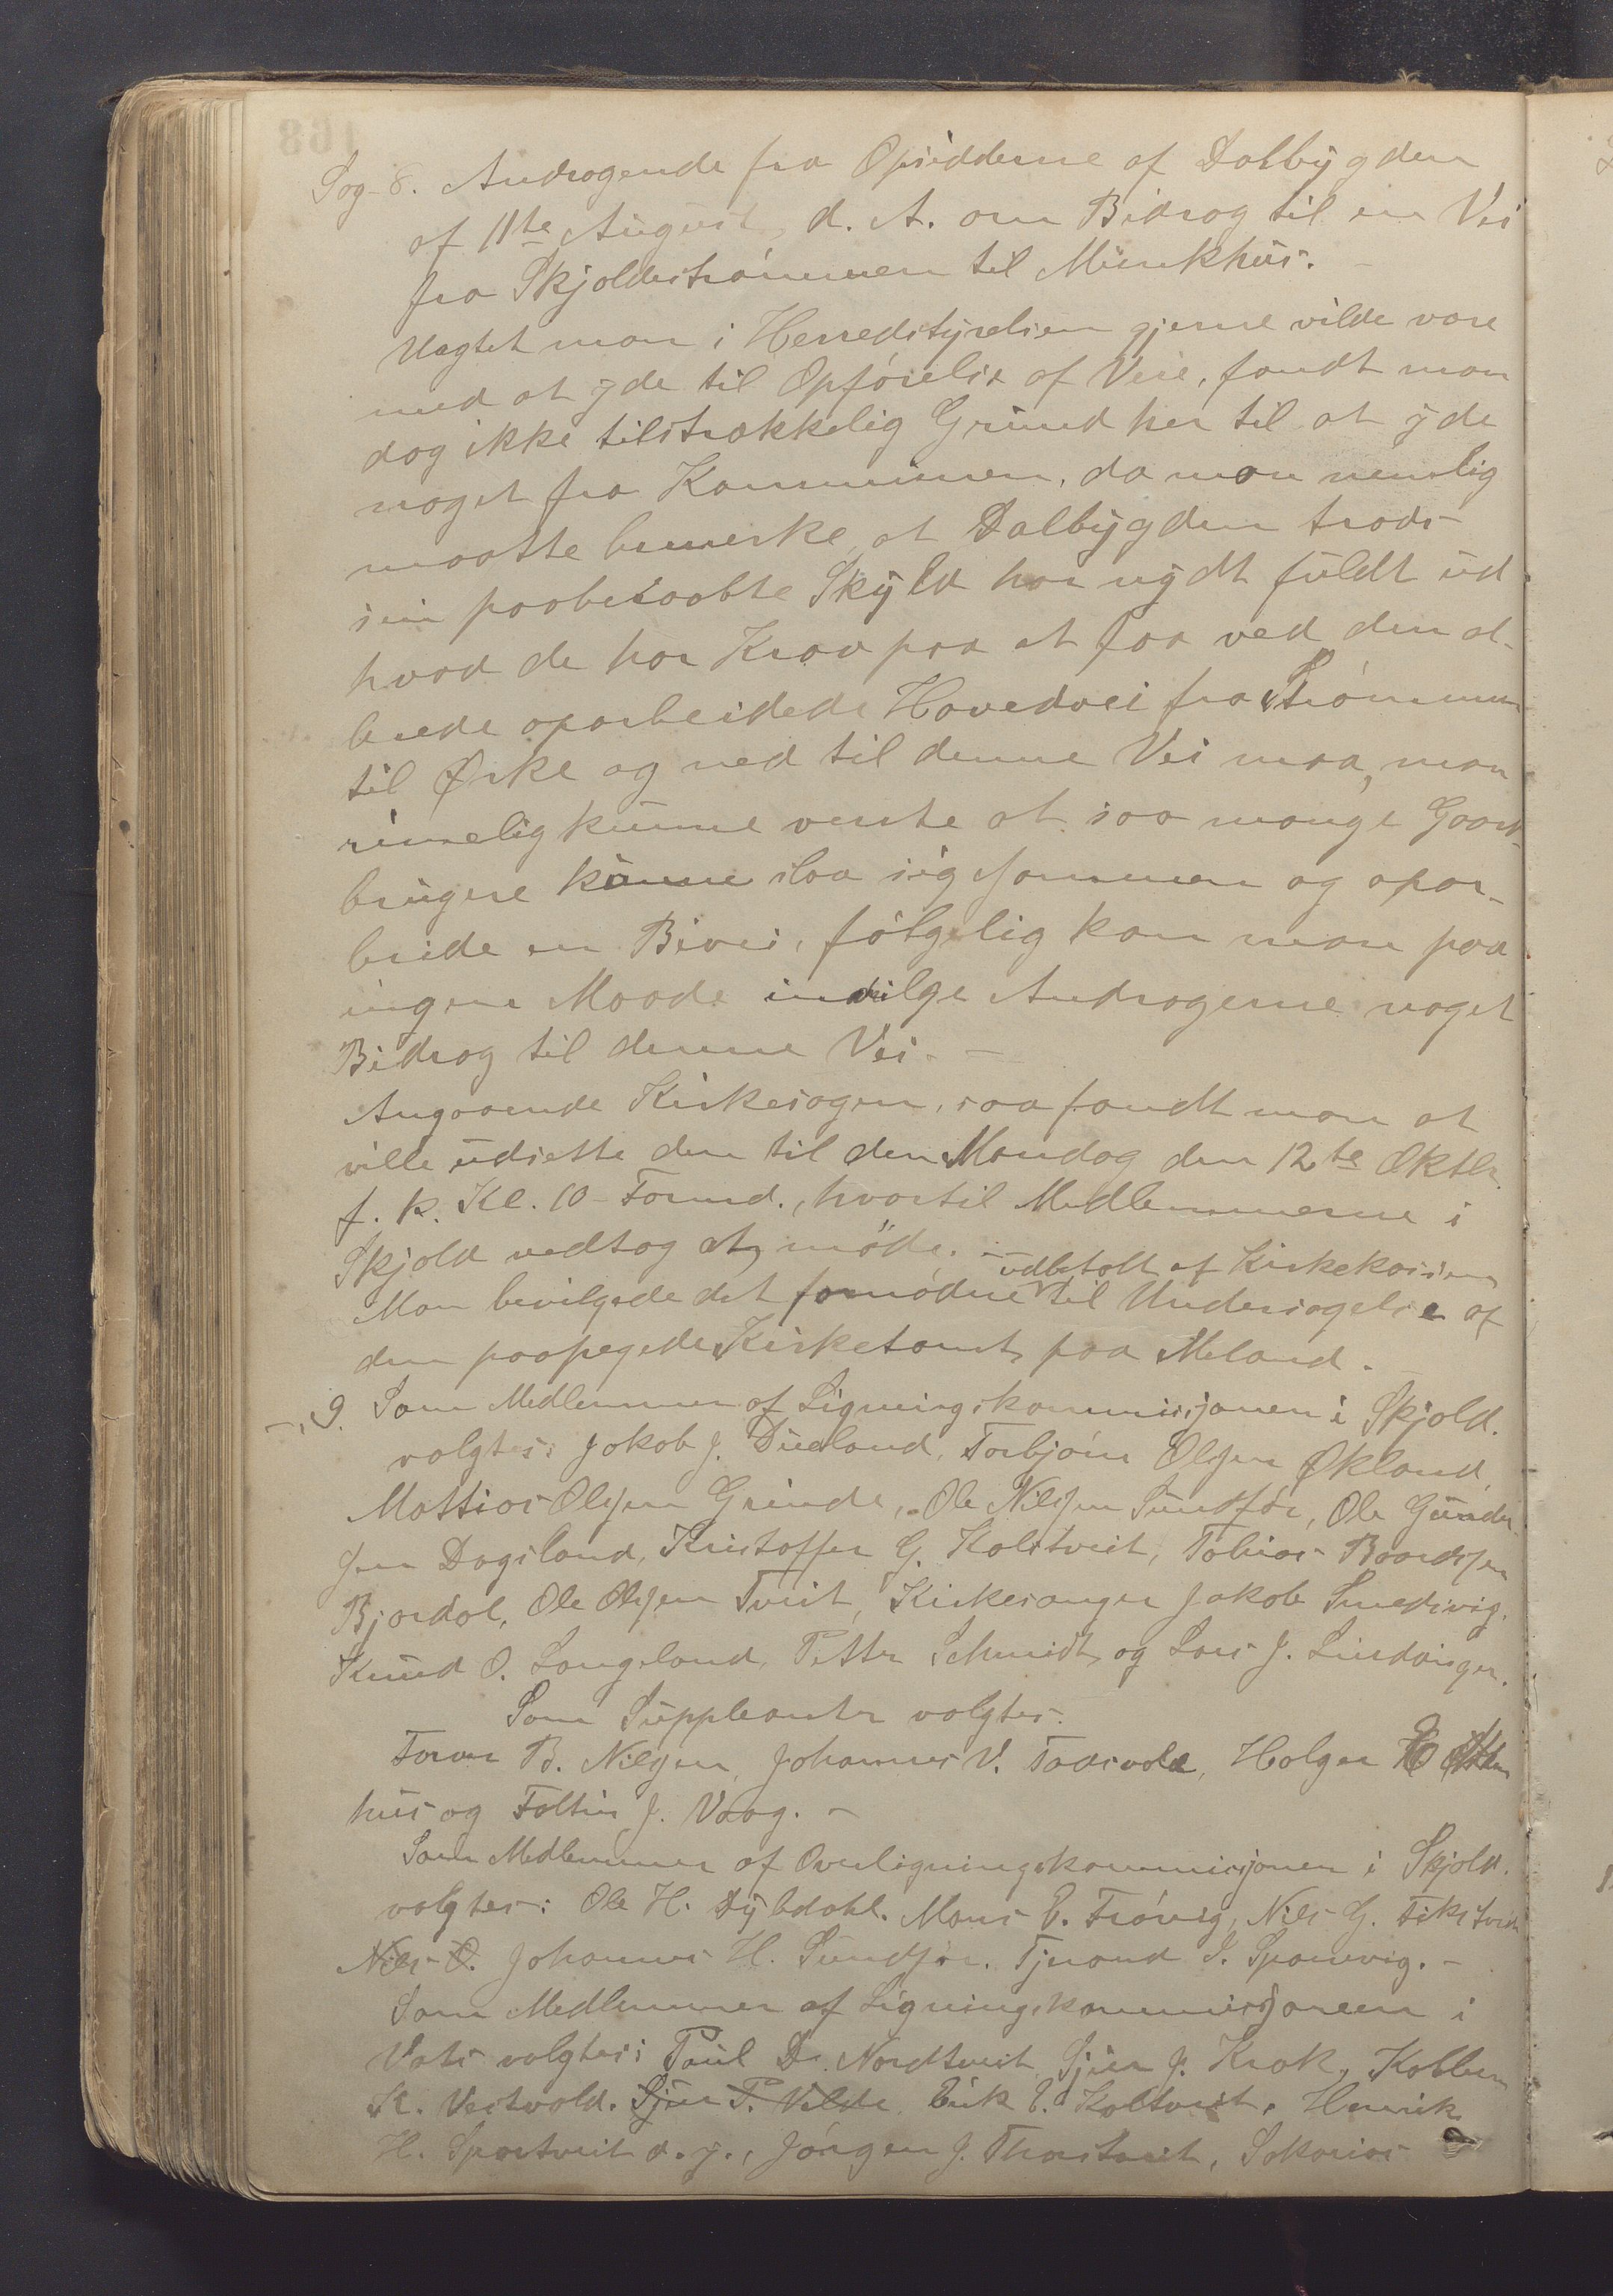 Sag 8. Andragende fra Opsidderne af Dalbygden
af 11te August d. A. om Bidrag til en Vei
fra Skjoldestrømmen til Munkhus. –
Uagtet man i Herredstyrelsen gjerne vilde være
med at yde til Opførelse af Veie, fandt man
dog ikke tilstrækkelig Grund her til at yde
noget fra Kommunen, da man nemlig
maatte bemerke, at Dalbygden trods
sin paaberaabte Skyld har nydt fuldt ud
hvad de har Krav paa at faa ved den al-
lerede oparbeidede Hovedvei fra Strømmen
til Ørke og ned til denne Vei maa, man
rimelig kunne vente at saa mange Gaard-
brugere kunne slaa sig sammen og opar-
beide en Bivei, følgelig kan man paa
ingen Maade indvilge Andragerne noget
Bidrag til denne Vei. –
Angaaende Kirkesagen, saa fandt man at
ville udsætte den til den Mandag den 12te Oktbr.
f. k. Kl. 10 Formd., hvortil Medlemmerne i
Skjold vedtog at møde. –
udbetalt af Kirkekassen
Man bevilgede det fornødne til Undersøgelse af
den paapegede Kirketomt paa Meland. –
– " 9. Som Medlemmer af Ligningskommissjonen i Skjold
valgtes: Jakob J. Dueland, Torbjørn Olsen Økland,
Mattias Olsen Grinde, Ole Nilsen Sundfør, Ole Gunder-
sen Dagsland, Kristoffer G. Kolstveit, Tobias Baardsen
Bjordal, Ole Olsen Tveit, Kirkesanger Jakob Smedsvig,
Knud O. Langeland, Petter Schmidt og Lars J. Lindanger.
Som Suppleanter valgtes:
B. Nilsen, Johannes V. Holger
hus og Foltin J. Vaag. –
Som Medlemmer af Overligningskommissjonen i Skjold
valgtes: Ole H. Dybdahl. Mons E. Frøvig, Nils G.
Nils O. Johannes H. Sundfør. Tjerand S. –
Som Medlemmer af Ligningskommissjonen i
Vats valgtes: Paul D. Nordtveit, Sjur J. Krak, Kolben
K. Vestvold. Sjur P. Velde, Erik E. Koltveit, Henrik
H. d. y., Jørgen J. Sakarias